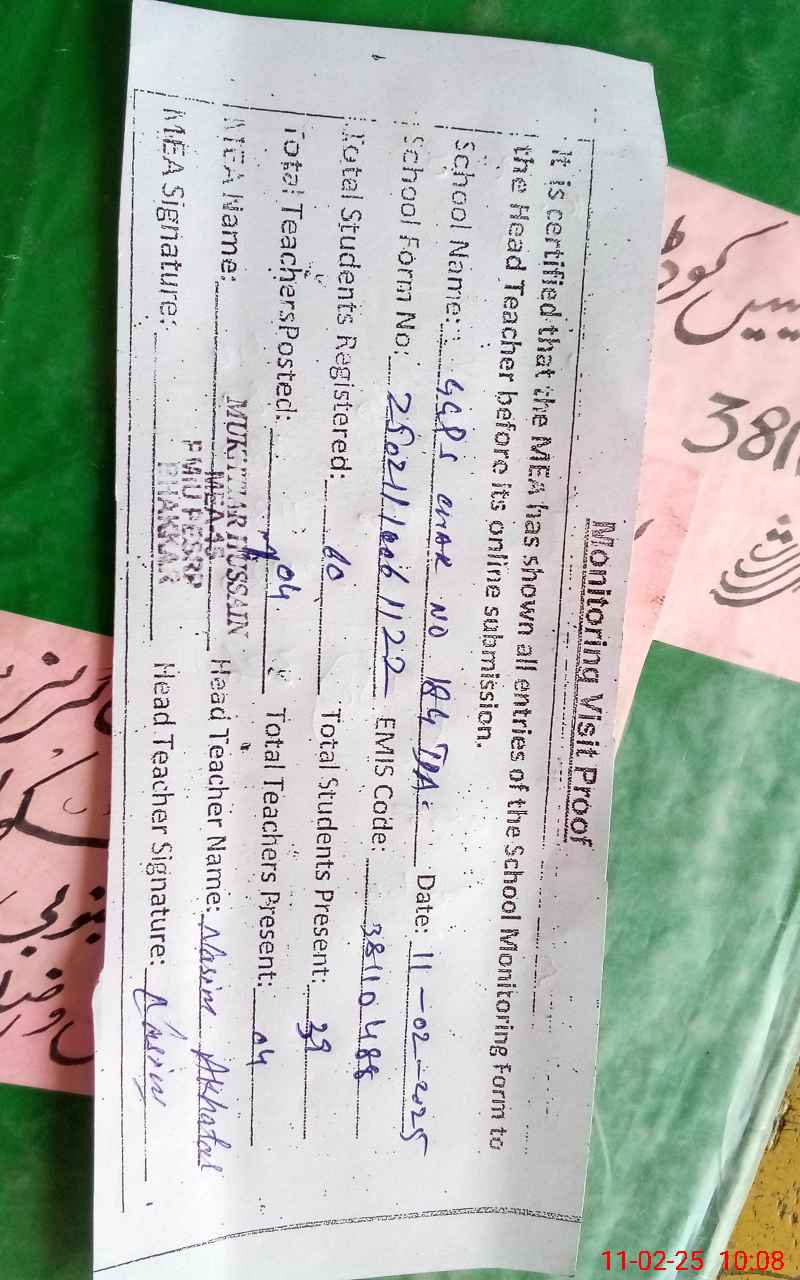 Monitoring Visit Proof
It is certified that the MEA has shown all entries of the School Monitoring Form to
the Head Teacher before its online submission.
School Name: GGPS CHAK NO 184 TDA. Date: 11-02-2025
School Form No: 25021110061122 EMIS Code: 38110488
Total Students Registered: 60 Total Students Present: 39
Total Teachers Posted: 04 Total Teachers Present: 04
MEA Name: MUKHTAR HUSSAIN Head Teacher Name: Nasim Akhatar
MEA-45
PMIU PESRP
BHAKKAR
MEA Signature: Head Teacher Signature: Nasim
کوڈ
381
11-02-25 10:08